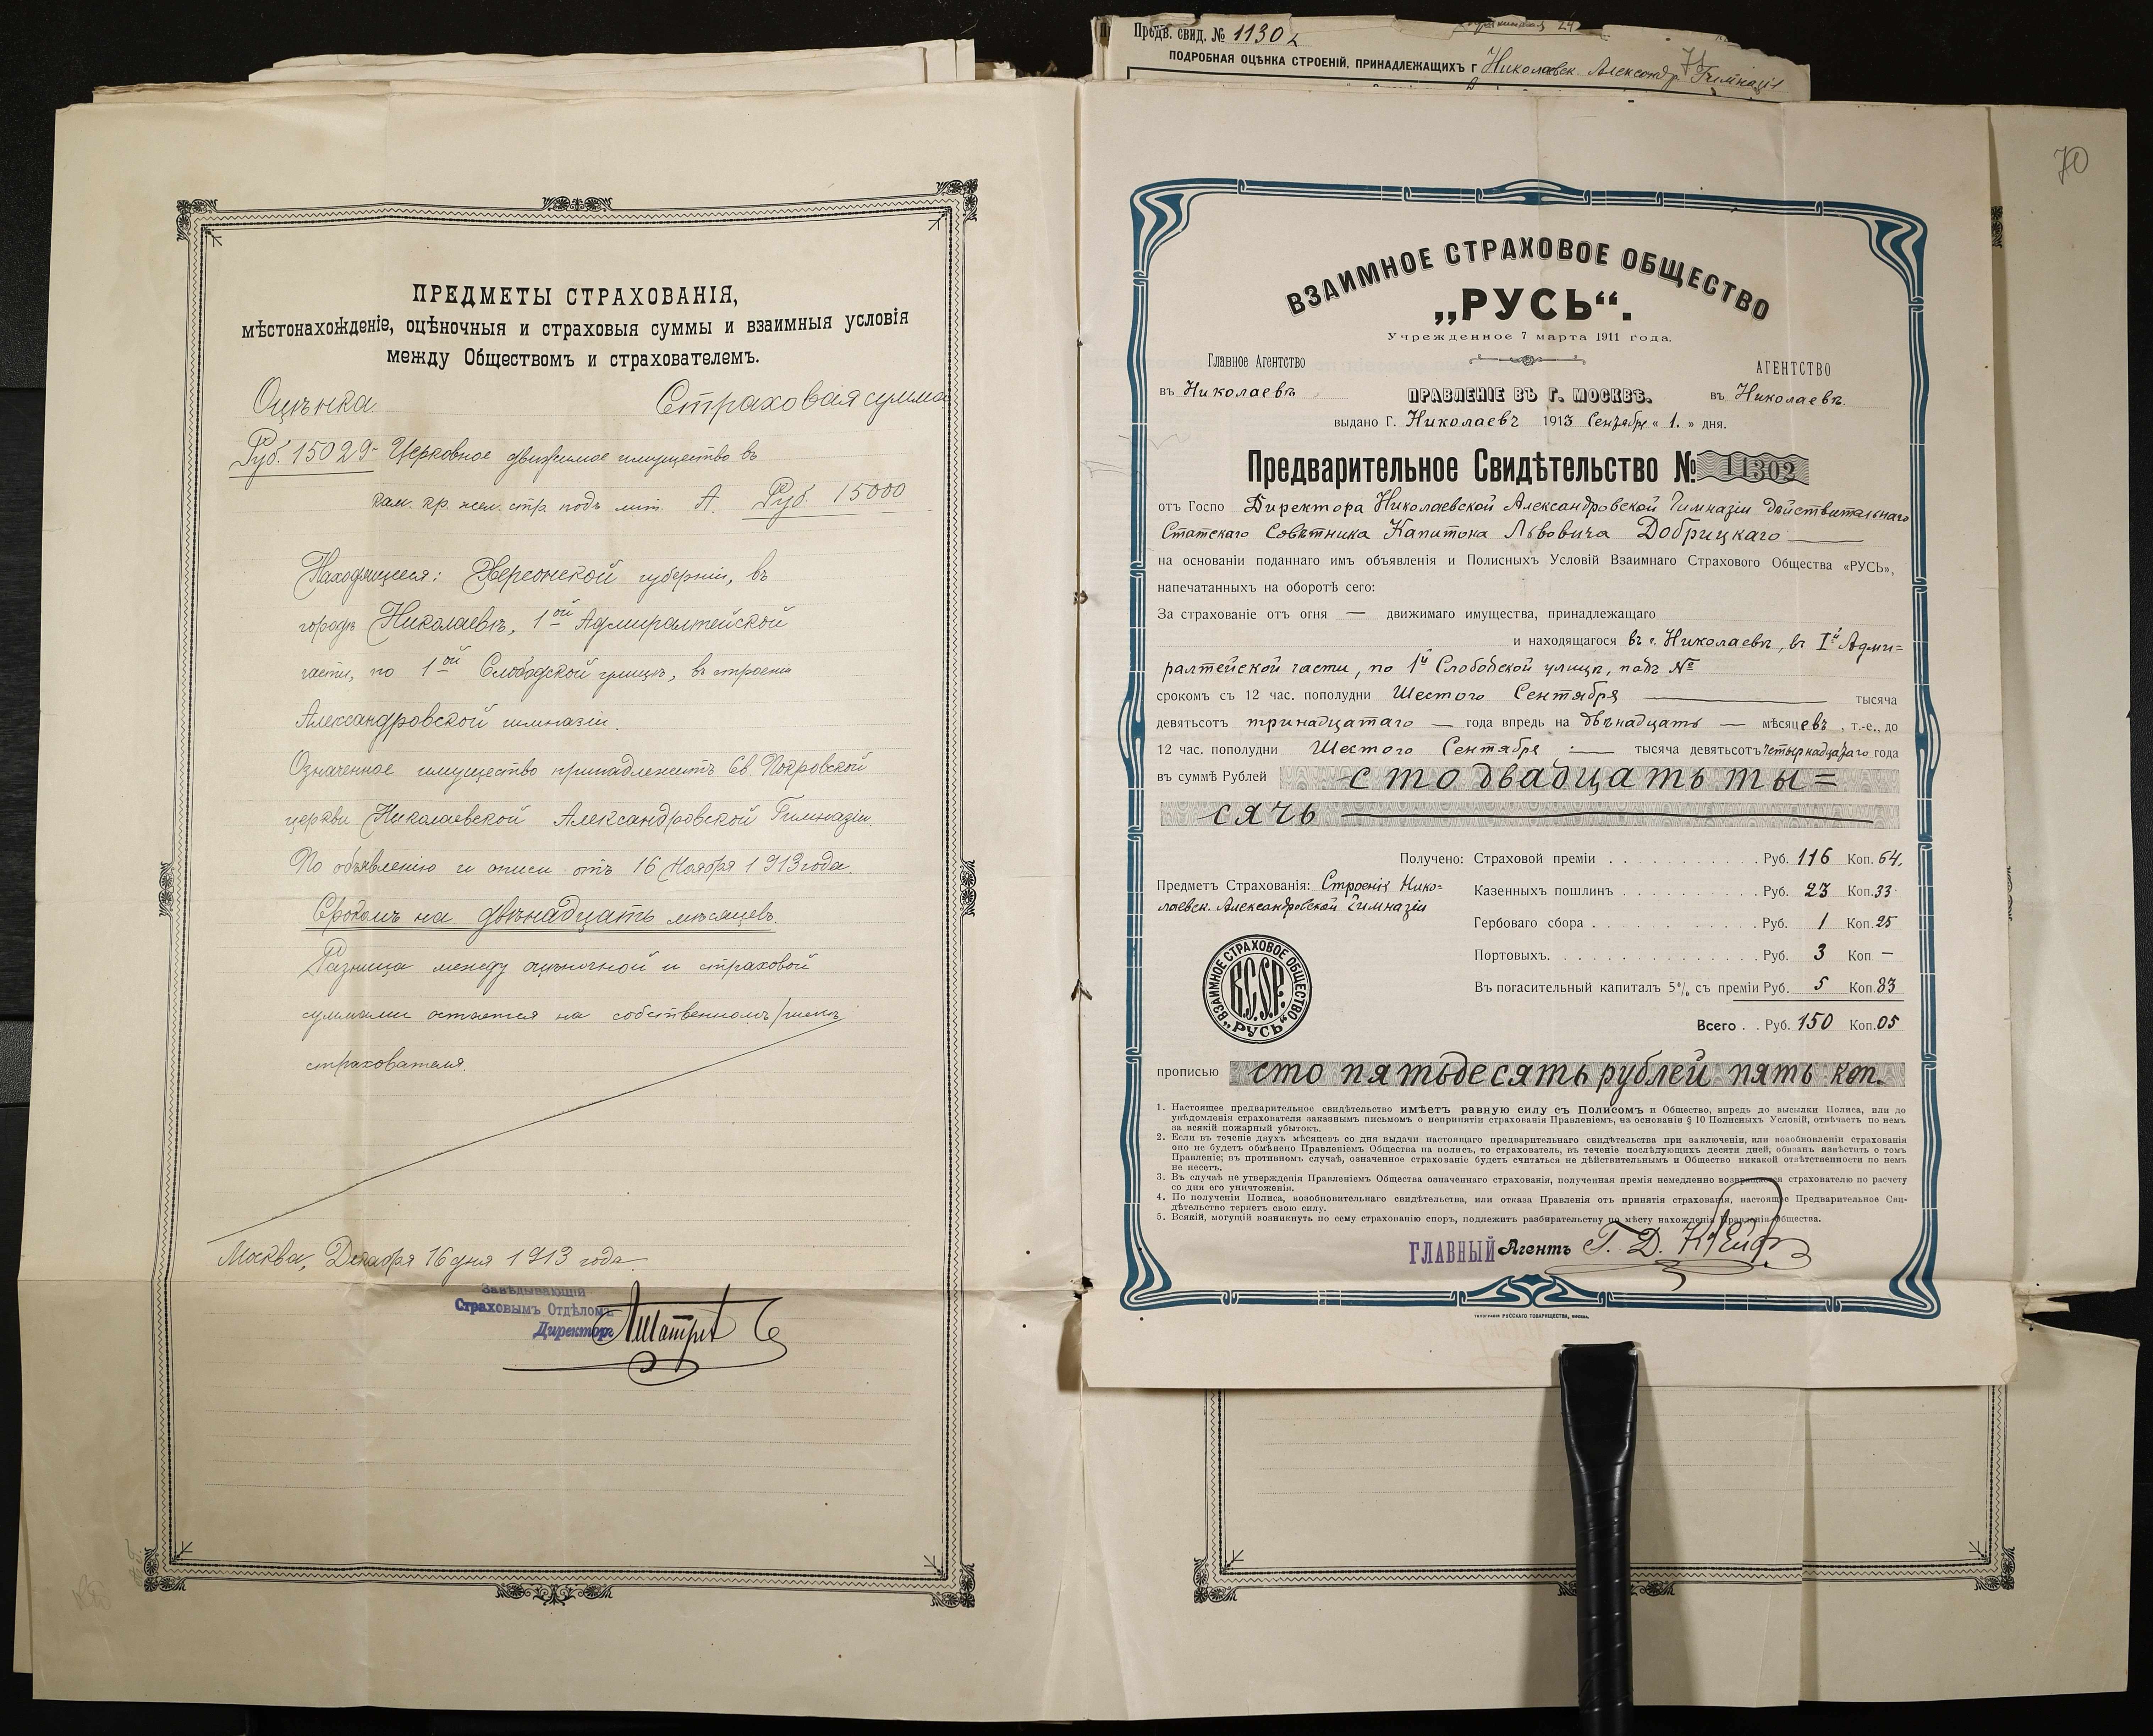 ПРЕДМЕТЫ СТРАХОВАНІЯ,
мѣстонахожденіе, оцѣночныя и страховыя суммы и взаимныя условія
между Обществомъ и страхователемъ.
Оцѣнка. Страховая сумма.
Руб. 15029- Церковное движимое имущество въ
кам. кр. жел. стр. подъ лит. А. Руб. 15000
Находящееся: Херсонской губерніи, въ
городѣ Николаевѣ, 1ой Адмиралтейской
части, по 1ой Слободской улицѣ, въ строеніи
Александровской гимназіи.
Означенное имущество принадлежитъ Св. Покровской
церкви Николаевской Александровской Гимназіи.
По объявленію и описи отъ 16 Ноября 1913 года.
Срокомъ на двѣнадцать мѣсяцевъ.
Разница между оцѣночной и страховой
суммами остается на собственномъ рискѣ
страхователя.
Москва, Декабря 16 дня 1913 года
Завѣдывающій
Страховымъ Отдѣломъ
Директоръ
Предв. свид. № 11302
ПОДРОБНАЯ ОЦѢНКА СТРОЕНІЙ, ПРИНАДЛЕЖАЩИХЪ г Николаевск. Александр. Гимназіи
71
70
ВЗАИМНОЕ СТРАХОВОЕ ОБЩЕСТВО
„РУСЬ“.
Учрежденное 7 марта 1911 года.
Главное Агентство
въ Николаевѣ
ПРАВЛЕНІЕ ВЪ Г. МОСКВѢ.
АГЕНТСТВО
въ Николаевѣ.
выдано Г. Николаевъ 1913 Сентября « 1. » дня.
Предварительное Свидѣтельство № 11302
отъ Госпо Директора Николаевской Александровской Гимназіи Дѣйствительнаго
Статскаго Совѣтника Капитона Львовича Добрицкаго
на основаніи поданнаго имъ объявленія и Полисныхъ Условій Взаимнаго Страхового Общества «РУСЬ»,
напечатанныхъ на оборотѣ сего:
За страхованіе отъ огня — движимаго имущества, принадлежащаго
и находящагося въ г. Николаевѣ, въ Iй Адми=
ралтейской части, по 1й Слободской улицѣ, подъ №
срокомъ съ 12 час. пополудни Шестого Сентября тысяча
девятьсотъ тринадцатаго — года впредь на двѣнадцать — мѣсяцевъ, т.-е., до
12 час. пополудни Шестого Сентября — тысяча девятьсотъ четырнадцатаго года
въ суммѣ Рублей сто двадцать ты=
сячъ
Получено: Страховой преміи . . . . Руб. 116 Коп. 64,
Предметъ Страхованія: Строенія Нико=
лаевск. Александровской Гимназіи
Казенныхъ пошлинъ . . . . Руб. 23 Коп. 33
Гербоваго сбора . . . . Руб. 1 Коп. 25
Портовыхъ. . . . . Руб. 3 Коп —
Въ погасительный капиталъ 5% съ преміи Руб. 5 Коп. 83
Всего . . Руб. 150 Коп. 05
ВЗАИМНОЕ СТРАХОВОЕ ОБЩЕСТВО
В.С.О.Р.
„РУСЬ“
прописью сто пятьдесятъ рублей пять коп.
1. Настоящее предварительное свидѣтельство имѣетъ равную силу съ Полисомъ и Общество, впредь до высылки Полиса, или до
увѣдомленія страхователя заказнымъ письмомъ о непринятіи страхованія Правленіемъ, на основаніи § 10 Полисныхъ Условій, отвѣчаетъ по немъ
за всякій пожарный убытокъ.
2. Если въ теченіе двухъ мѣсяцевъ со дня выдачи настоящаго предварительнаго свидѣтельства при заключеніи, или возобновленіи страхованія
оно не будетъ обмѣнено Правленіемъ Общества на полисъ, то страхователь, въ теченіе послѣдующихъ десяти дней, обязанъ извѣстить о томъ
Правленіе; въ противномъ случаѣ, означенное страхованіе будетъ считаться не дѣйствительнымъ и Общество никакой отвѣтственности по немъ
не несетъ.
3. Въ случаѣ не утвержденія Правленіемъ Общества означеннаго страхованія, полученная премія немедленно возвращается страхователю по расчету
со дня его уничтоженія.
4. По полученіи Полиса, возобновительнаго свидѣтельства, или отказа Правленія отъ принятія страхованія, настоящее Предварительное Сви-
дѣтельство теряетъ свою силу.
5. Всякій, могущій возникнуть по сему страхованію споръ, подлежитъ разбирательству по мѣсту нахожденія Правленія Общества.
ГЛАВНЫЙ Агентъ Г. Д.
ТИПОГРАФІЯ РУССКАГО ТОВАРИЩЕСТВА, МОСКВА.